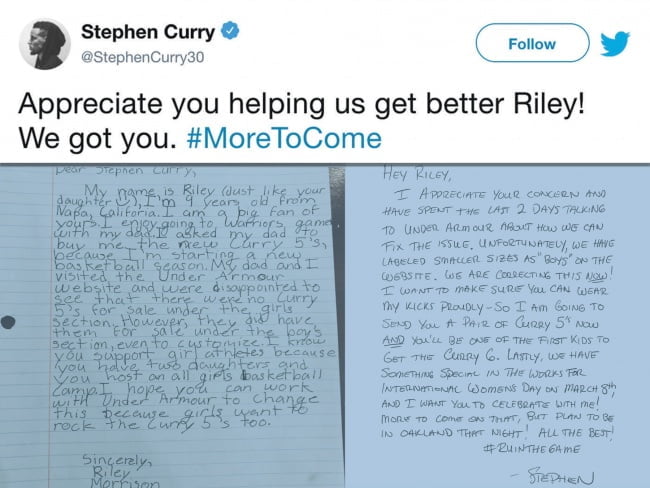 Stephen Curry
@StephenCurry30
Follow
Appreciate you helping us get better Riley!
We got you. #MoreToCome
Dear Stephen Curry,
My name is Riley (just like your
daughter ☺), I'm 9 years old from
Napa, Califoria. I am a big fan of
yours. I enjoy going to Warriors game
with my dad. I asked my dad to
buy me the new Curry 5's,
because I'm starting a new
basketball season. My dad and I
visited the Under Armour
website and were disappointed to
see that there were no Curry
5's for sale under the girls
section. However, they did have
them for sale under the boy's
section, even to customize. I know
you support girl athletes because
you have two daughters and
you host an all girls basketball
camp. I hope you can work
with Under Armour to change
this because girls want to
rock the Curry 5's too.
Sincerely,
Riley
Morrison
HEY RILEY,
I APPRECIATE YOUR CONCERN AND
HAVE SPENT THE LAST 2 DAYS TALKING
TO UNDER ARMOUR ABOUT HOW WE CAN
FIX THE ISSUE. UNFORTUNATELY, WE HAVE
LABELED SMALLER SIZES AS "BOYS" ON THE
WEBSITE. WE ARE CORRECTING THIS NOW!
I WANT TO MAKE SURE YOU CAN WEAR
MY KICKS PROUDLY - SO I AM GOING TO
SEND YOU A PAIR OF CURRY 5s NOW
AND YOU'LL BE ONE OF THE FIRST KIDS TO
GET THE CURRY 6. LASTLY, WE HAVE
SOMETHING SPECIAL IN THE WORKS FOR
INTERNATIONAL WOMENS DAY ON MARCH 8th,
AND I WANT YOU TO CELEBRATE WITH ME!
MORE TO COME ON THAT, BUT PLAN TO BE
IN OAKLAND THAT NIGHT! ALL THE BEST!
#RUINTHEGAME
- STEPHEN